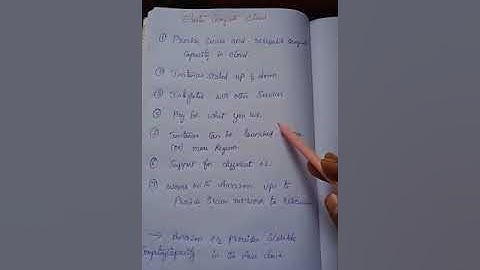 Elastic Compute Cloud
① Provides secure and resizable compute
Capacity in cloud
② Instances scaled up & down
③ Integrated with other Services
④ Pay for what you use
⑤ Instances can be launched in one
(or) more Regions
⑥ Support for different OS
⑦ Works with Amazon VPC to
Provide Secure network to
→ Amazon EC2 Provides Scalable
Computing Capacity in the AWS cloud